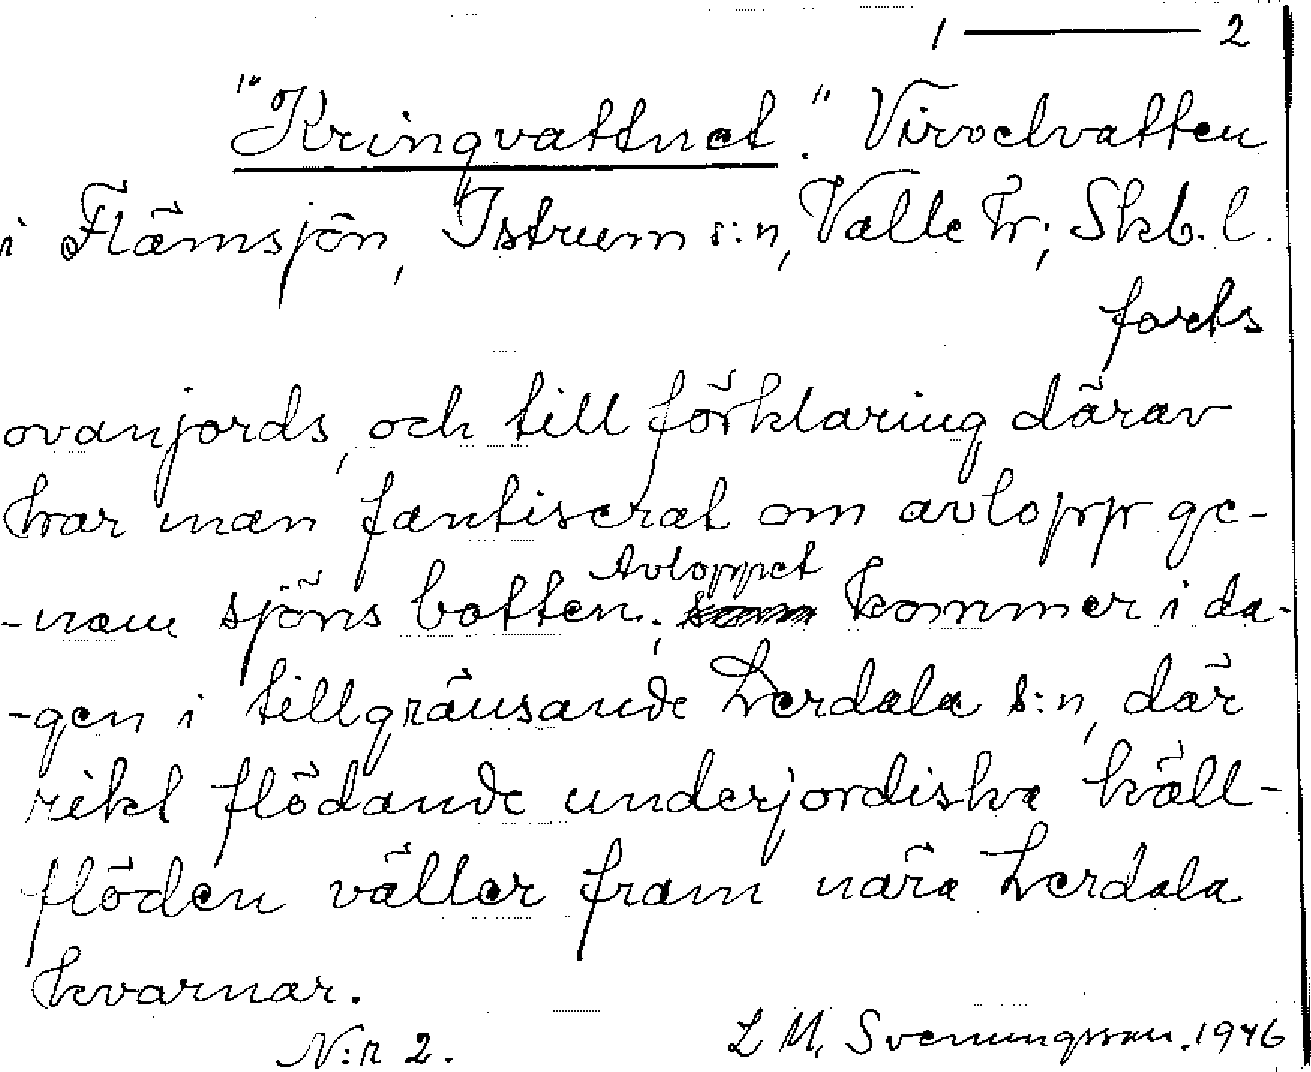 1 — 2
"Kringvattnet". Virvelvatten
i Flämsjön, Istrum s:n, Valle hr; Skb. l.
forts
ovanjords, och till förklaring därav
har man fantiserat om avlopp ge-
-nom sjöns botten; Avloppet kommer i da-
-gen i tillgränsande Lerdala s:n, där
rikt flödande underjordiska käll-
flöden väller fram nära Lerdala
kvarnar.
N:r 2. L M. Svenungsson. 1946